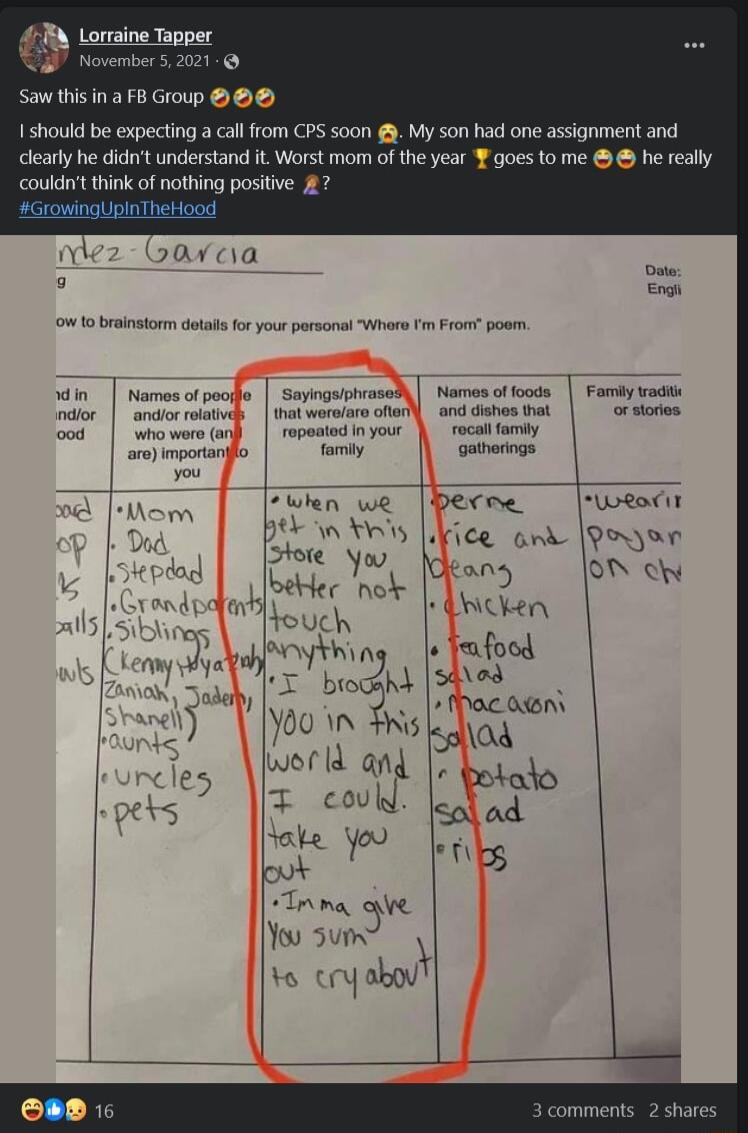 Lorraine Tapper
November 5, 2021 ·
Saw this in a FB Group 🤣🤣🤣
I should be expecting a call from CPS soon 😭. My son had one assignment and
clearly he didn't understand it. Worst mom of the year 🏆goes to me 😂😂 he really
couldn't think of nothing positive 🤦🏽‍♀️?
#GrowingUpInTheHood
ndez-Garcia
g
Date:
Engli
ow to brainstorm details for your personal "Where I'm From" poem.
nd in
and/or
ood
oard
op
ks
balls
Names of people
and/or relatives
who were (and
are) important to
you
•Mom
• Dad
•Stepdad
•Grandparents
•siblings
(kenny,
Zaniah, Jaden,
Shanell)
•aunts
•uncles
•pets
Sayings/phrases
that were/are often
repeated in your
family
•when we
get in this
store you
better not
touch
anything
•I brought
you in this
world and
I could.
take you
out
•Imma give
you sum
to cry about
Names of foods
and dishes that
recall family
gatherings
•perne
•rice and
beans
•chicken
•seafood
salad
•macaroni
salad
•potato
salad
•ribs
Family traditi
or stories
•wearin
pajam
on ch
16
3 comments 2 shares